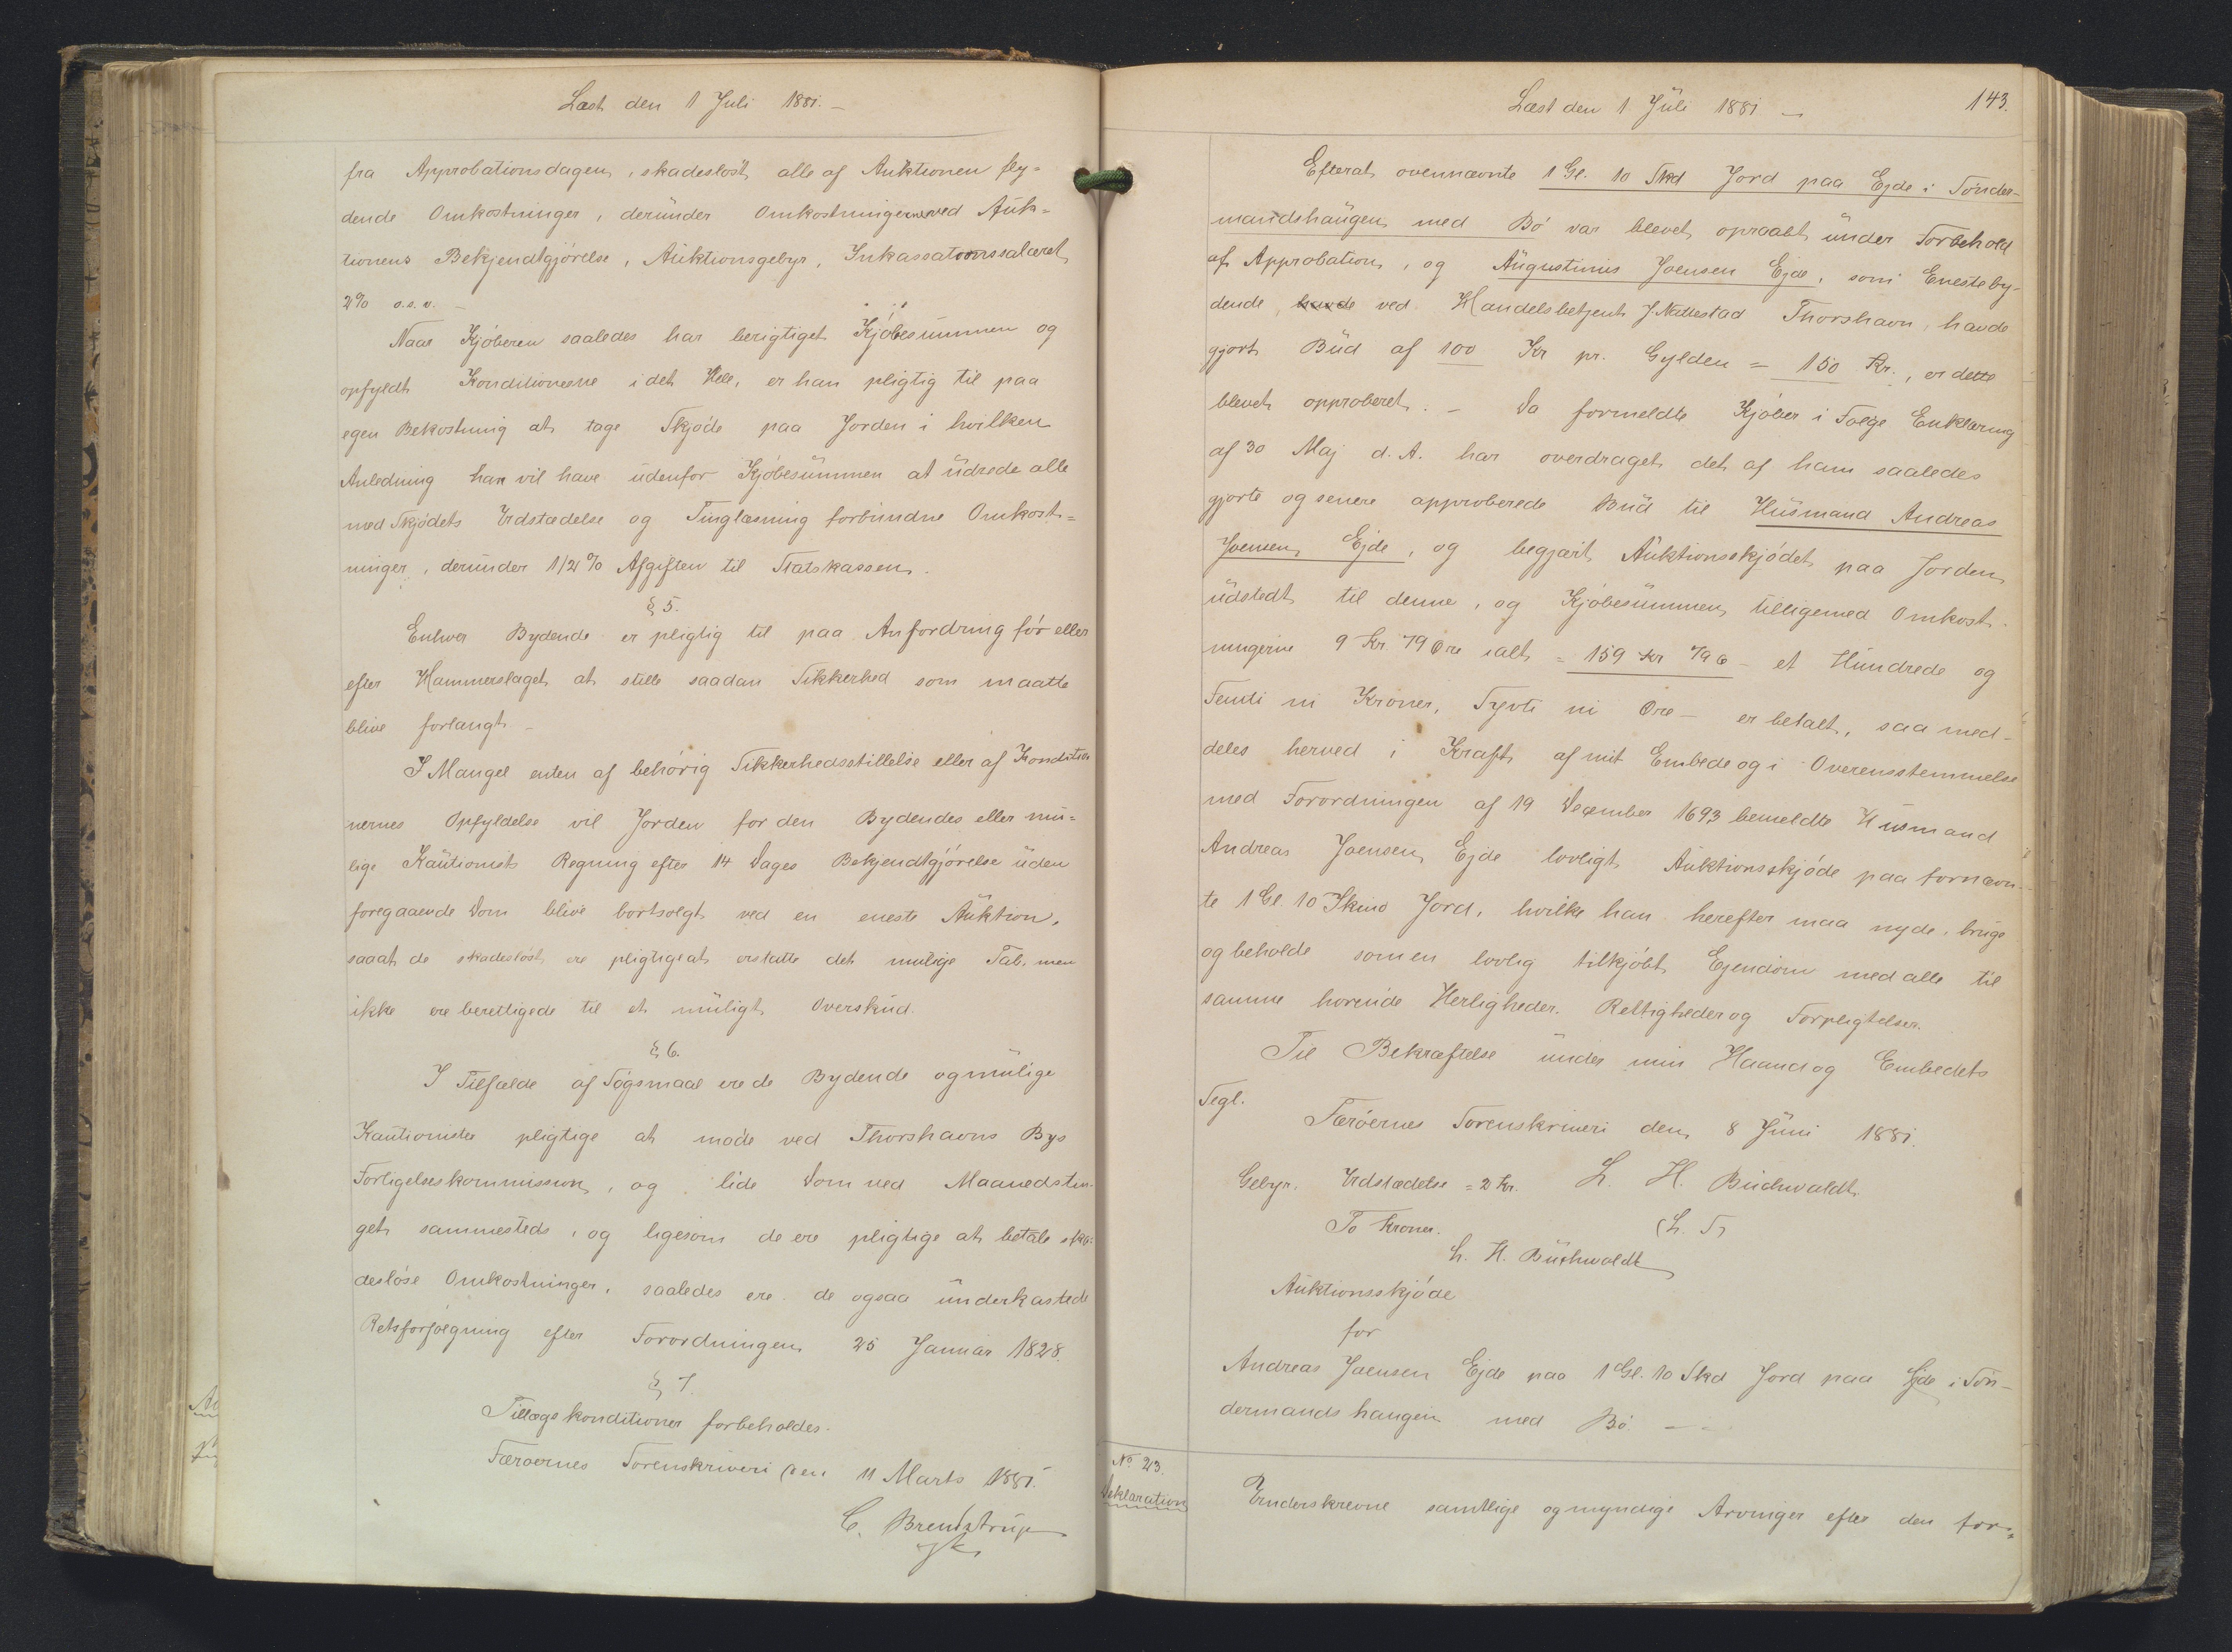 Læst den 1 Juli 1881. –
fra Approbationsdagen, skadesløst alle af Auktionen fly=
dende Omkostninger, derunder Omkostningerne ved Auk=
tionens Bekjendtgjørelse, Auktionsgebyr, Inkassationssalæret
2% o.s.v. –
Naar Kjøberen saaledes har berigtiget Kjøbesummen og
opfyldt Konditionerne i det Hele, er han pligtig til paa
egen Bekostning at tage Skjøde paa Jorden i hvilken
Anledning han vil have udenfor Kjøbesummen at udrede alle
med Skjødets Udstædelse og Tinglæsning forbundne Omkost=
ninger, derunder 1/2% Afgiften til Statskassen.
§ 5.
Enhver Bydende er pligtig til paa Anfordring før eller
efter Hammerslaget at stille saadan Sikkerhed som maatte
blive forlangt –
I Mangel enten af behørig Sikkerhedsstillelse eller af Konditio
nernes Opfyldelse vil Jorden for den Bydendes eller mu=
lige Kautionists Regning efter 14 Dages Bekjendtgjørelse uden
foregaaende Dom blive bortsolgt ved en eneste Auktion,
saaat de skadesløst ere pligtige at erstatte det mulige Tab, men
ikke ere berettigede til et muligt Overskud.
§ 6.
I Tilfælde af Søgsmaal ere de Bydende og mulige
Kautionister pligtige at møde ved Thorshavns Bys
Forligelseskommission, og lide Dom ved Maanedstin-
get sammesteds, og ligesom de ere pligtige at betale ska=
desløse Omkostninger, saaledes ere de ogsaa underkastede
Retsforfølgning efter Forordningen 25 Januar 1828.
§ 7.
Tillægskonditioner forbeholdes.
Færøernes Sorenskriveri den 11 Marts 1881.
C. Bremstrup
Læst den 1. Juli 1881 –
143.
Efterat ovennævnte 1 Gl. 10 Skd Jord paa Ejde i Sønder-
mandshaugen med Bø var blevet opraabt under Forbehold
af Approbation, og Augustinus Joensen Ejde, som Enesteby-
dende, havde ved Handelsbetjent J. Nattestad Thorshavn, havde
gjort Bud af 100 Kr pr. Gylden = 150 Kr., er dette
blevet approberet. – Da formeldte Kjøber i Følge Erklæring
af 30 Maj d. A. har overdraget det af ham saaledes
gjorte og senere approberede Bud til Husmand Andreas
Joensen Ejde, og begjært Auktionsskjødet paa Jorden
udstedt til denne, og Kjøbesummen tilligemed Omkost-
ningerne 9 Kr. 79 Øre ialt = 159 Kr 79 Ø – et Hundrede og
Femti ni Kroner, Sytti ni Øre – er betalt, saa med-
deles herved i Kraft af mit Embede og i Overensstemmelse
med Forordningen af 19 December 1693 bemeldte Husmand
Andreas Joensen Ejde lovligt Auktionsskjøde paa fornævn-
te 1 Gl 10 Skind Jord, hvilke han herefter maa nyde, bruge
og beholde som en lovlig tilkjøbt Ejendom med alle til
samme hørende Herligheder, Rettigheder og Forpligtelser.
Til Bekræftelse under min Haand og Embedets
Segl.
Færøernes Sorenskriveri den 8 Juni 1881.
Gebyr. Udstædelse = 2 Kr. L. H. Buchwaldt
To Kroner. (L. S.
L. H. Buchwaldt
Auktionsskjøde
for
Andreas Joensen Ejde paa 1 Gl. 10 Skd Jord paa Ejde i Søn-
dermandshaugen med Bø. –
No 23.
Deklaration
Underskrevne samtlige og myndige Arvinger efter den for=